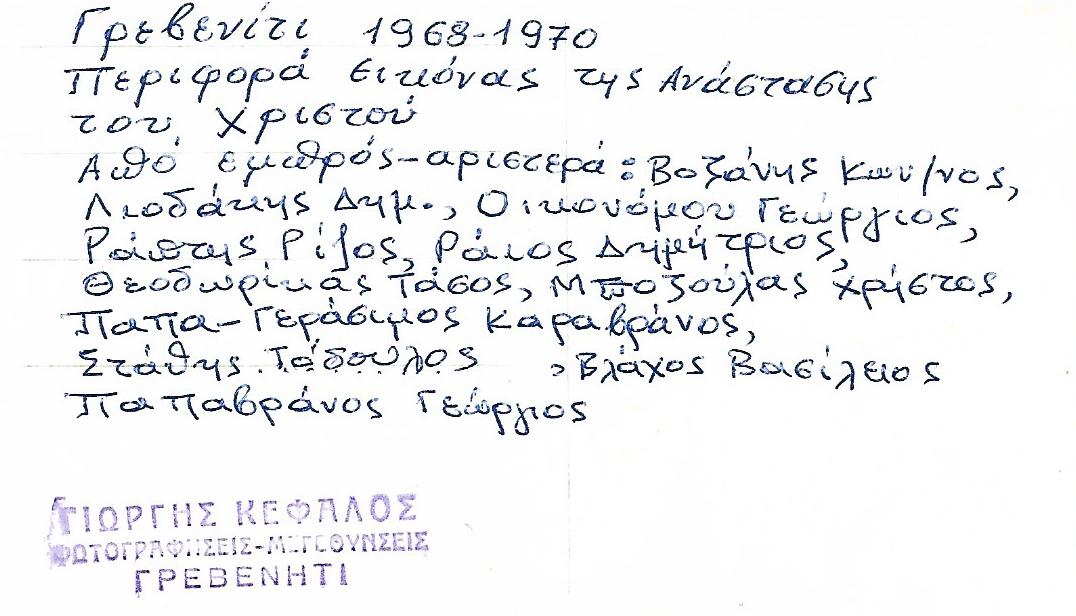 Γρεβενίτι 1968-1970
Περιφορά εικόνας της Ανάστασης
του Χριστού
Από εμπρός-αριστερά: Βοζάνης Κων/νος,
Λιοδάκης Δημ., Οικονόμου Γεώργιος,
Ράπτης Ρίζος, Ράιος Δημήτριος,
Θεοδωρίκας Τάσος, Μποζούλας Χρήστος,
Παπα-Γεράσιμος Καραβράνος,
Στάθης Τάδουλος , Βλάχος Βασίλειος
Παπαβράνος Γεώργιος
ΓΙΩΡΓΗΣ ΚΕΦΑΛΟΣ
ΦΩΤΟΓΡΑΦΗΣΕΙΣ-ΜΕΓΕΘΥΝΣΕΙΣ
ΓΡΕΒΕΝΗΤΙ